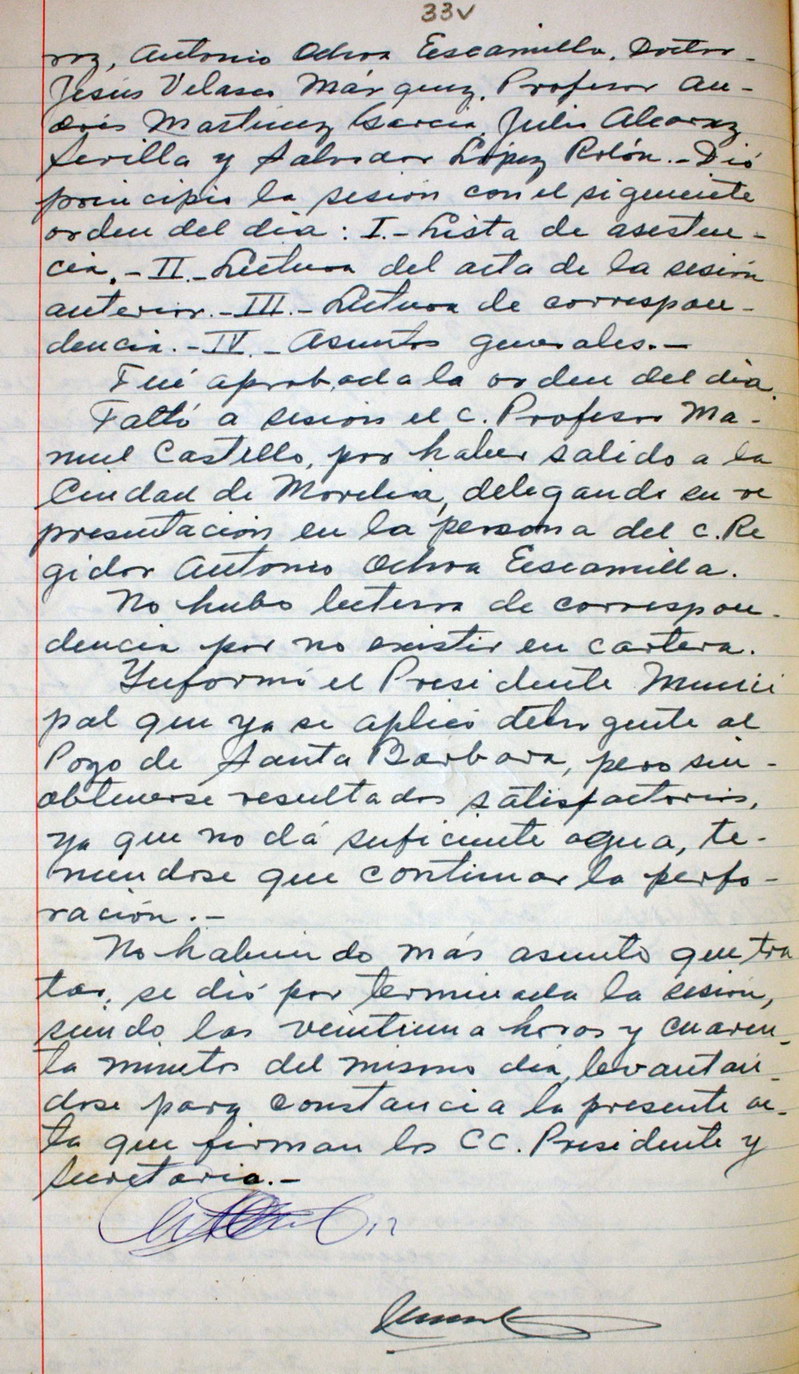 33v
roz, Antonio Ochoa Escamilla, Doctor
Jesús Velasco Márquez, Profesor An-
drés Martínez García, Julio Alcaraz
Sevilla y Salvador López Rolón.- Dió
principio la sesión con el siguiente
orden del dia: I.- Lista de asisten-
cia.- II.- Lectura del acta de la sesión
anterior.- III.- Lectura de correspon-
dencia.- IV.- Asuntos generales.-
Fué aprobada la orden del dia.
Faltó a sesión el C. Profesor Ma-
nuel Castello, por haber salido a la
Ciudad de Morelia, delegando su re
presentación en la persona del C. Re
gidor Antonio Ochoa Escamilla.
No hubo lectura de correspon-
dencia por no existir en cartera.
Informó el Presidente Munici
pal que ya se aplicó al
Pozo de Santa Barbara, pero sin-
obtenerse resultados satisfactorios,
ya que no dá suficiente agua, te-
niendose que continuar la perfo-
ración.-
No habiendo más asunto que tra
tar, se dió por terminada la sesión,
siendo las veintiuna horas y cuaren-
ta minutos del mismo dia, levantan-
dose para constancia la presente ac-
ta que firman los CC. Presidente y
Secretario.-